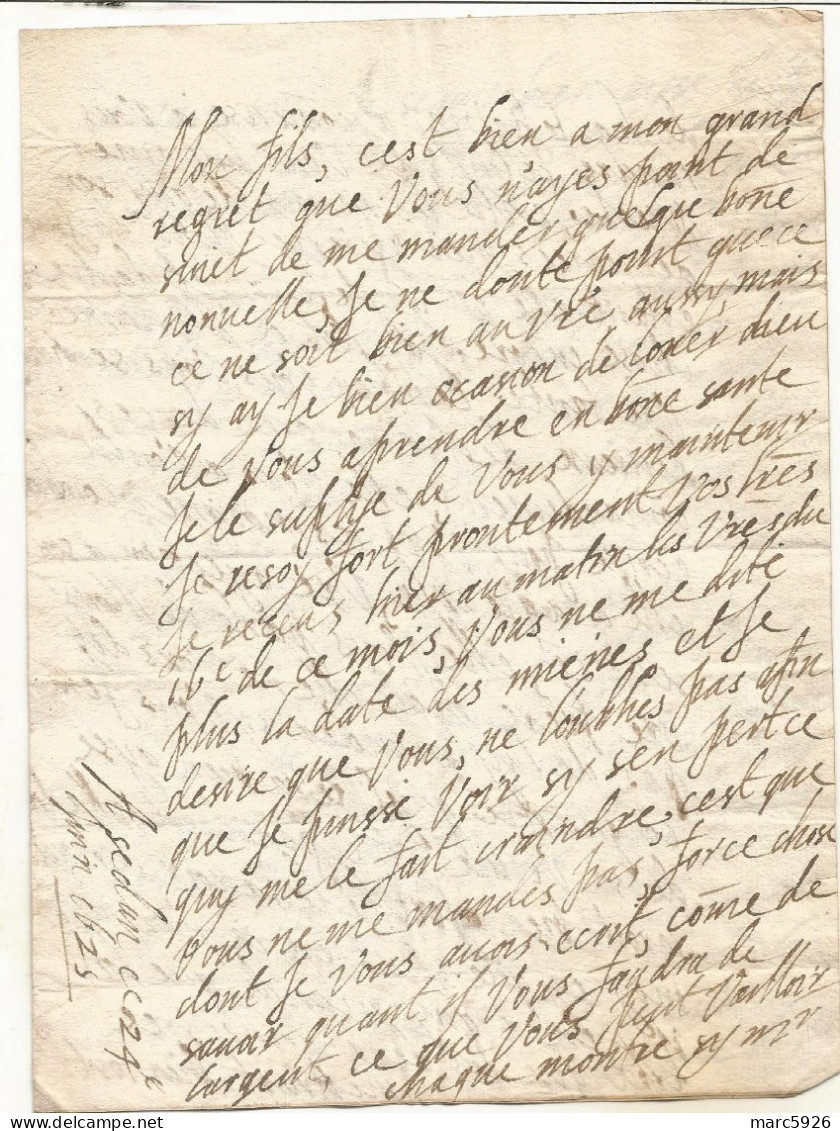 Mon fils, cest bien a mon grand
regret que Vous n'ayes point de
suiet de me mander quelque bone
nouuelle, Je ne doute point que ce
ce ne soit bien au Vre aussy, mais
sy ay Je bien ocasion de louer dieu
de Vous aprendre en bone sante
Je le suplye de Vous y maintenir
Je resoy fort prontement Vos lres
Je receus hier au matin les Vres du
16e de ce mois, Vous ne me dite
plus la date des mienes et Je
desire que Vous, ne loublies pas afin
que Je puisse Voir sy sen pert ce
quy me le fait craindre, cest que
Vous ne me mandes pas, force chose
dont Je Vous auois ecrit, come de
sauoir quant il Vous faudra de
largent, ce que Vous peut Valloir
chaque montre sy mr
A sedan ce 24e
Juin 1625
marc5926